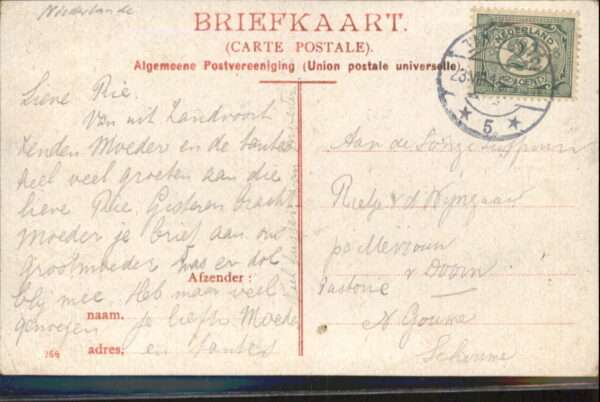 Niederlande
BRIEFKAART.
(CARTE POSTALE).
Algemeene Postvereeniging (Union postale universelle).
NEDERLAND
2½
CENT
5
Lieve Rie.
Van uit Zandvoort
zenden Moeder en de tantes
heel veel groeten aan die
lieve Rie. Gisteren bracht
Moeder je brief aan ons
Grootmoeder was er dol
blij mee. Heb maar veel
genoegen je liefh Moeder
en tantes
Afzender:
naam,
adres,
266
Aan de Jonge
Rietje v d Wijngaar
pa Mevrouw
v Doorn
Pastorie
N. Gouwe